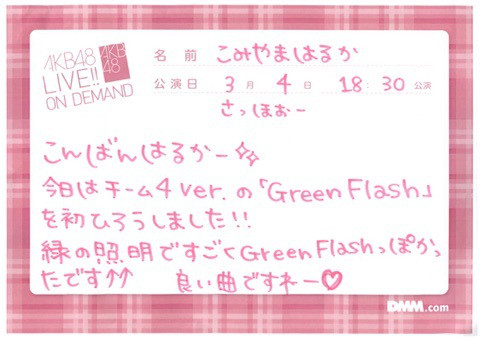 AKB48
LIVE!!
ON DEMAND
AKB
48
名前 こみやまはるか
公演日 3月 4日 18:30公演
さっほおー
こんばんはるかー✨
今日はチーム4 ver.の「Green Flash」
を初ひろうしました!!
緑の照明ですごくGreen Flashっぽかっ
たです↑↑ 良い曲ですねー♡
DMM.com